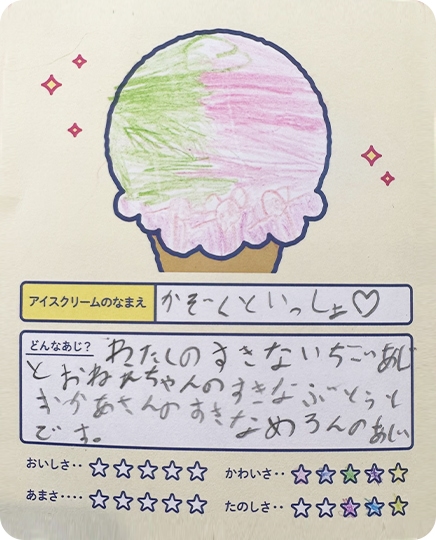 アイスクリームのなまえ かぞーくといっしょ♡
どんなあじ? わたしのすきないちごあじ
とおねえちゃんのすきなぶどうと
おかあさんのすきなめろんのあじ
です。
おいしさ‥ ☆☆☆☆☆ かわいさ‥ ☆☆☆☆☆
あまさ‥‥ ☆☆☆☆☆ たのしさ‥ ☆☆☆☆☆